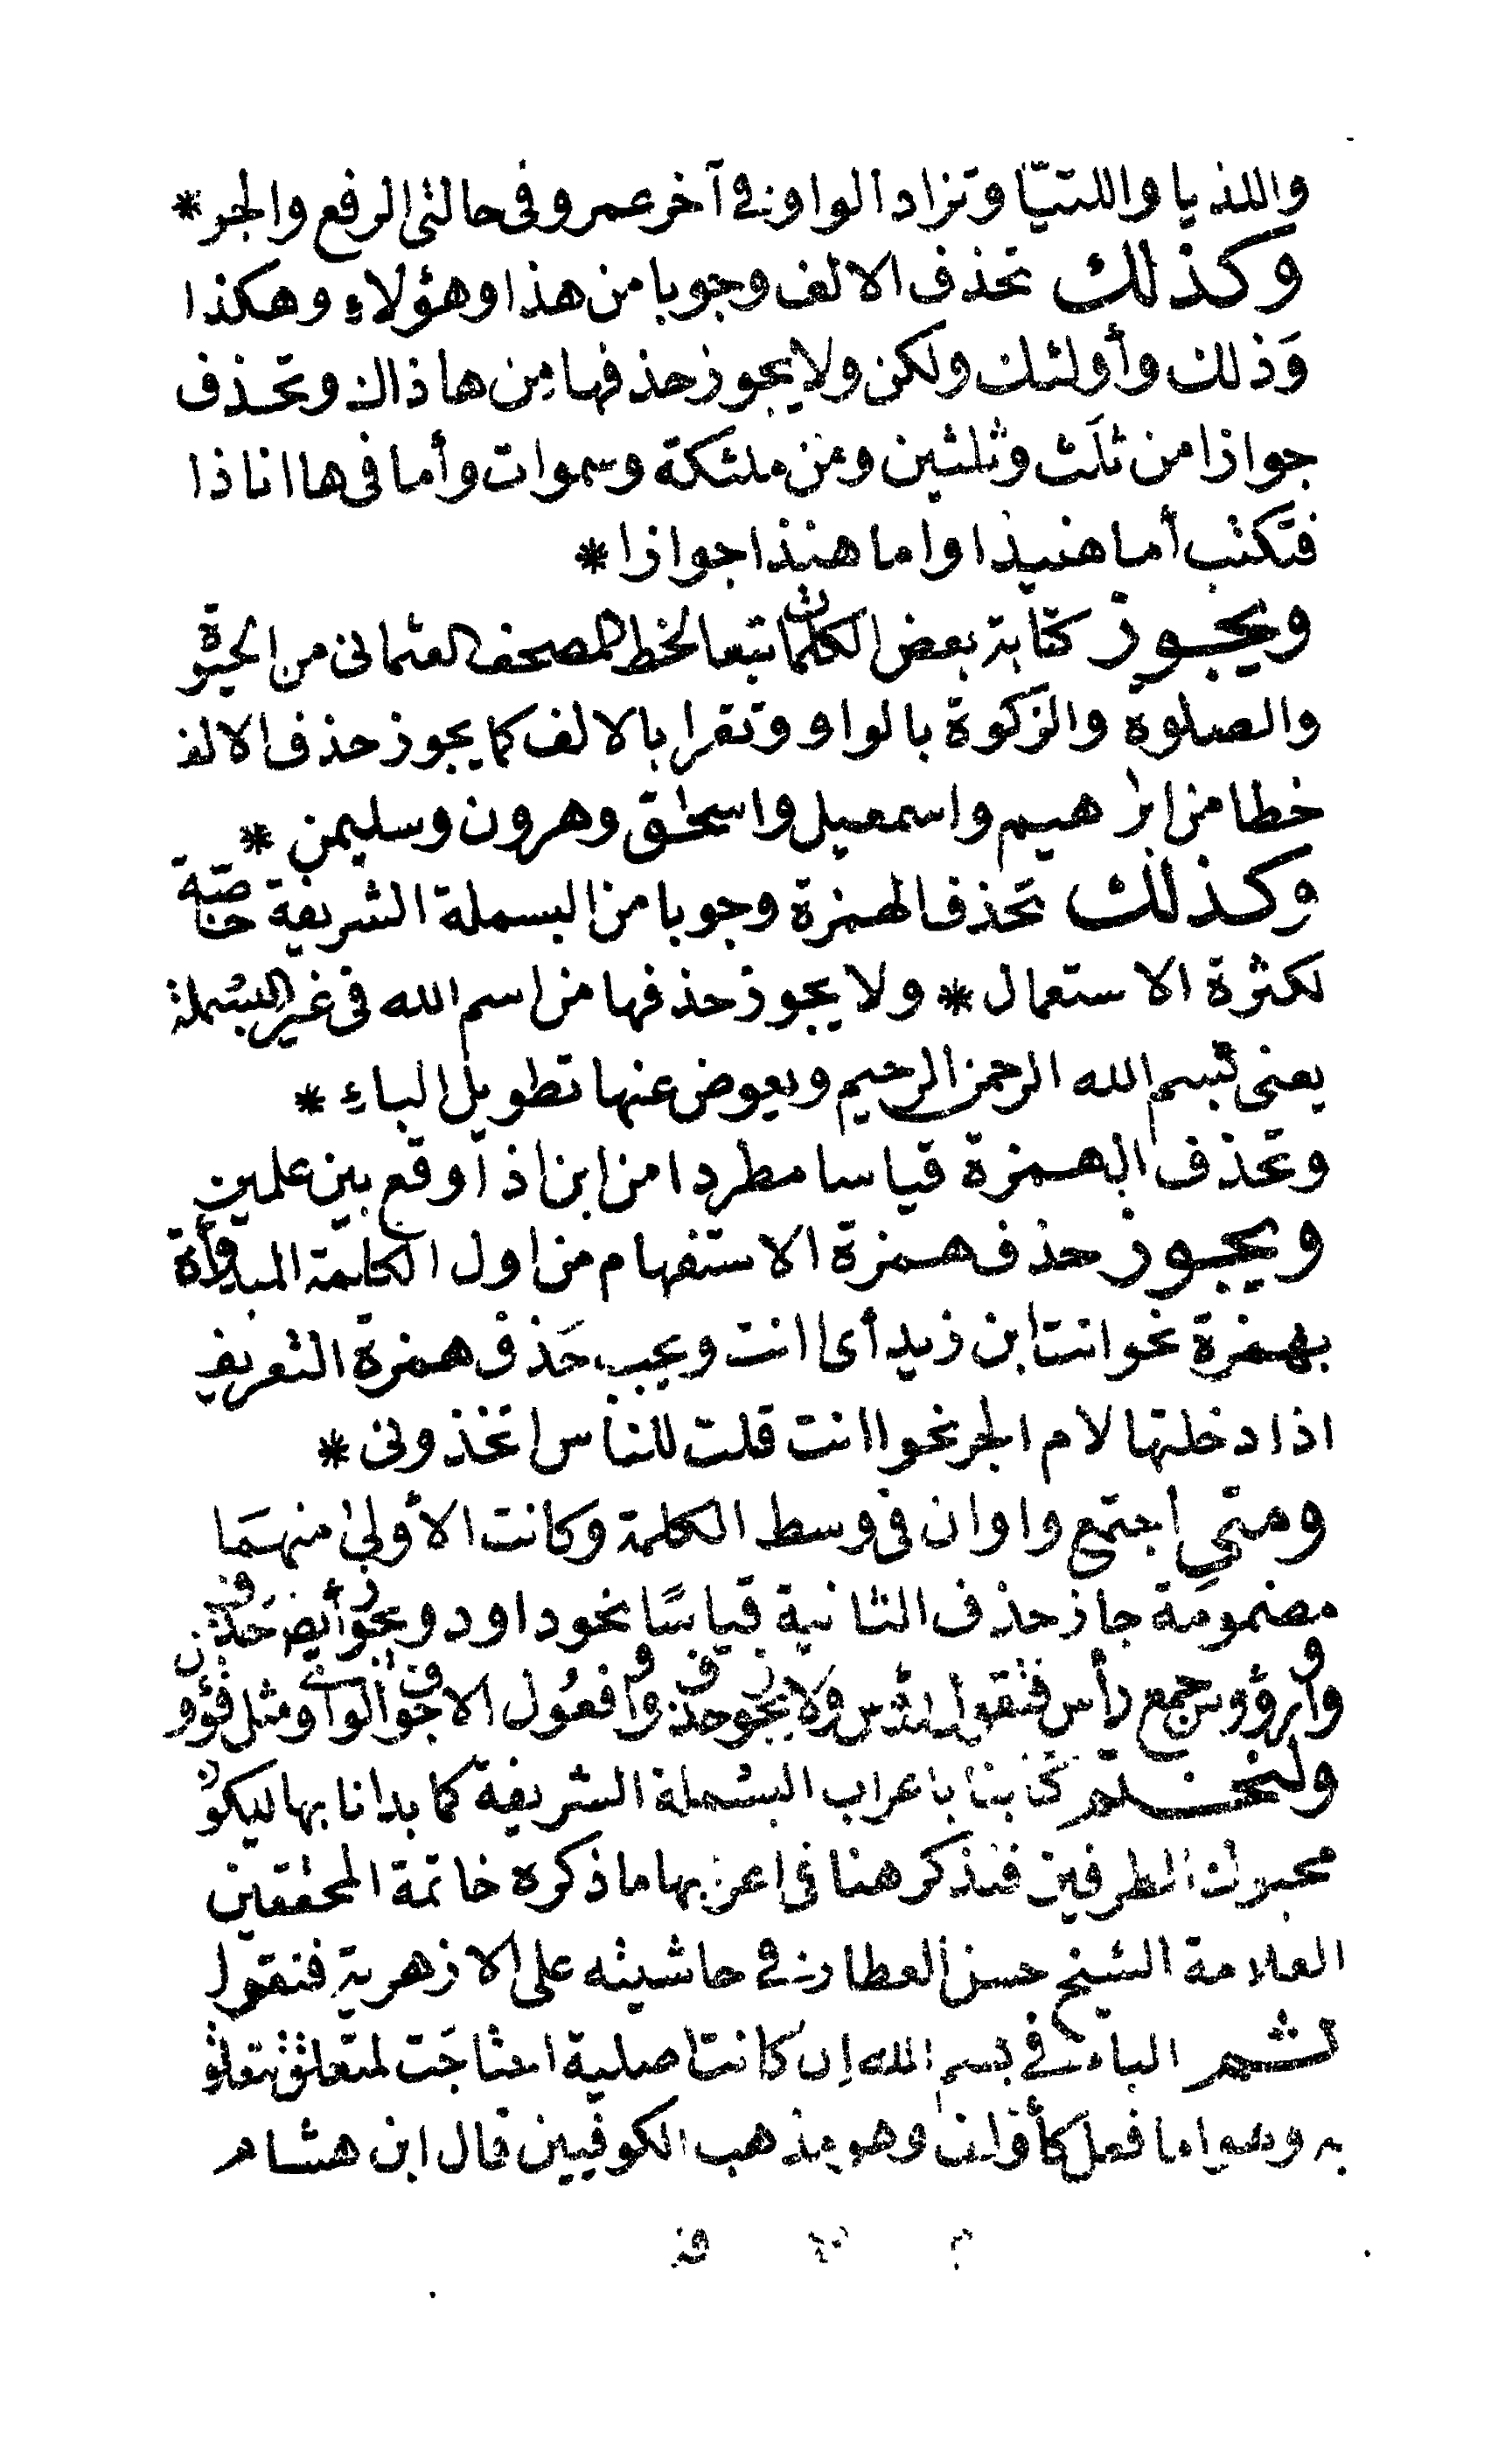 واللذيا واللتيّا وتزاد الواو في آخر عمرو في حالتي الرفع والجر *
وكذلك تحذف الالف وجوبا من هذا وهؤلاء وهكذا
وَذلك وأولئك ولكن ولا يجوز حذفها من هاذاك وتحذف
جوازا من ثلَث وثلثين ومن ملئكة وسموات وأما في ها انا ذا
فتكتب أما هنيذا واما هنذا جوازا *
ويجوز كتابة بعض الكلمات تبعا لخط المصحف العثماني من الحيوة
والصلوة والزكوة بالواو وتقرا بالالف كما يجوز حذف الالف
خطا من ابراهيم واسمعيل واسحق وهرون وسليمن *
وكذلك تحذف الهمزة وجوبا من البسملة الشريفة خاصّة
لكثرة الاستعمال * ولا يجوز حذفها من اسم الله في غير البسملة
يعني بسم الله الرحمن الرحيم ويعوض عنها تطويل الباء *
وتحذف الهمزة قياسا مطردا من ابن اذا وقع بين علمين
ويجوز حذف همزة الاستفهام من اول الكلمة المبدوأة
بهمزة نحو انت ابن زيد أى اانت ويجب حَذف همزة التعريف
اذا دخلتها لام الجر نحو اانت قلت للناس اتخذوني *
ومتى اجتمع واوان في وسط الكلمة وكانت الأولى منهمَا
مضمومة جاز حذف الثانية قياسًا نحو داود ويجوز أيضا حَذف
واو رؤوس جمع رأس فتقول رؤس ولا يجوز حذف واو فعُول الاجوف الواوى ومثل فؤون
ولنختم كتابنا باعراب البسملة الشريفة كما بدانا بها ليكون
محبوك الطرفين فنذكر هنا في اعرابها ما ذكره خاتمة المحققين
العلامة الشيخ حسن العطار في حاشيته على الازهرية فنقول
ثم الباء في بسم الله إن كانت اصلية احتاجَت لمتعلق تتعلق
به وهو اما فعل كأولف وهو مذهب الكوفيين قال ابن هشام